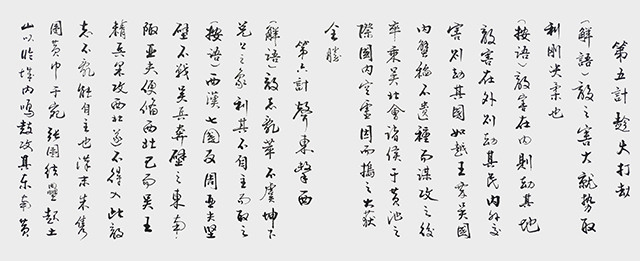 第五計趁火打劫
（解語）敵之害大就勢取
利剛夬柔也
（按語）敵害在内則劫其地
敵害在外則劫其民内外交
害則劫其國如越王乘吴國
内蟹稻不遺種而謀攻之後
卒乘吴北會諸侯于黄池之
際國内空虚因而搗之大获
全勝
第六計聲東擊西
（解語）敵志亂萃不虞坤下
兑上之象利其不自主而取之
（按語）西漢七國反周亞夫堅
壁不戰吴兵奔壁之東南
陬亞夫便備西北已而吴王
精兵果攻西北遂不得入此敵
志不亂能自主也漢末朱雋
圍黄巾于宛張圍結壘起土
山以临城内鸣鼓攻其東南黄